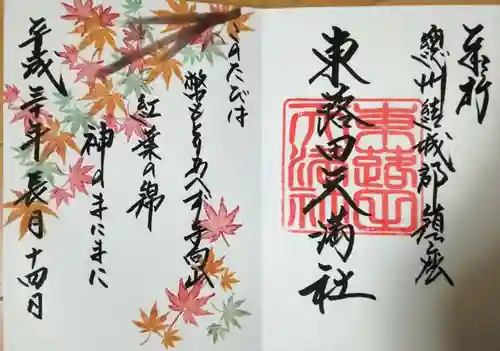 奉拝
總州結城郡鎮座
東蕗田天満社
東蕗田
天満社
このたびは
幣もとりあへず手向山
紅葉の錦
神のまにまに
平成三十年長月十四日